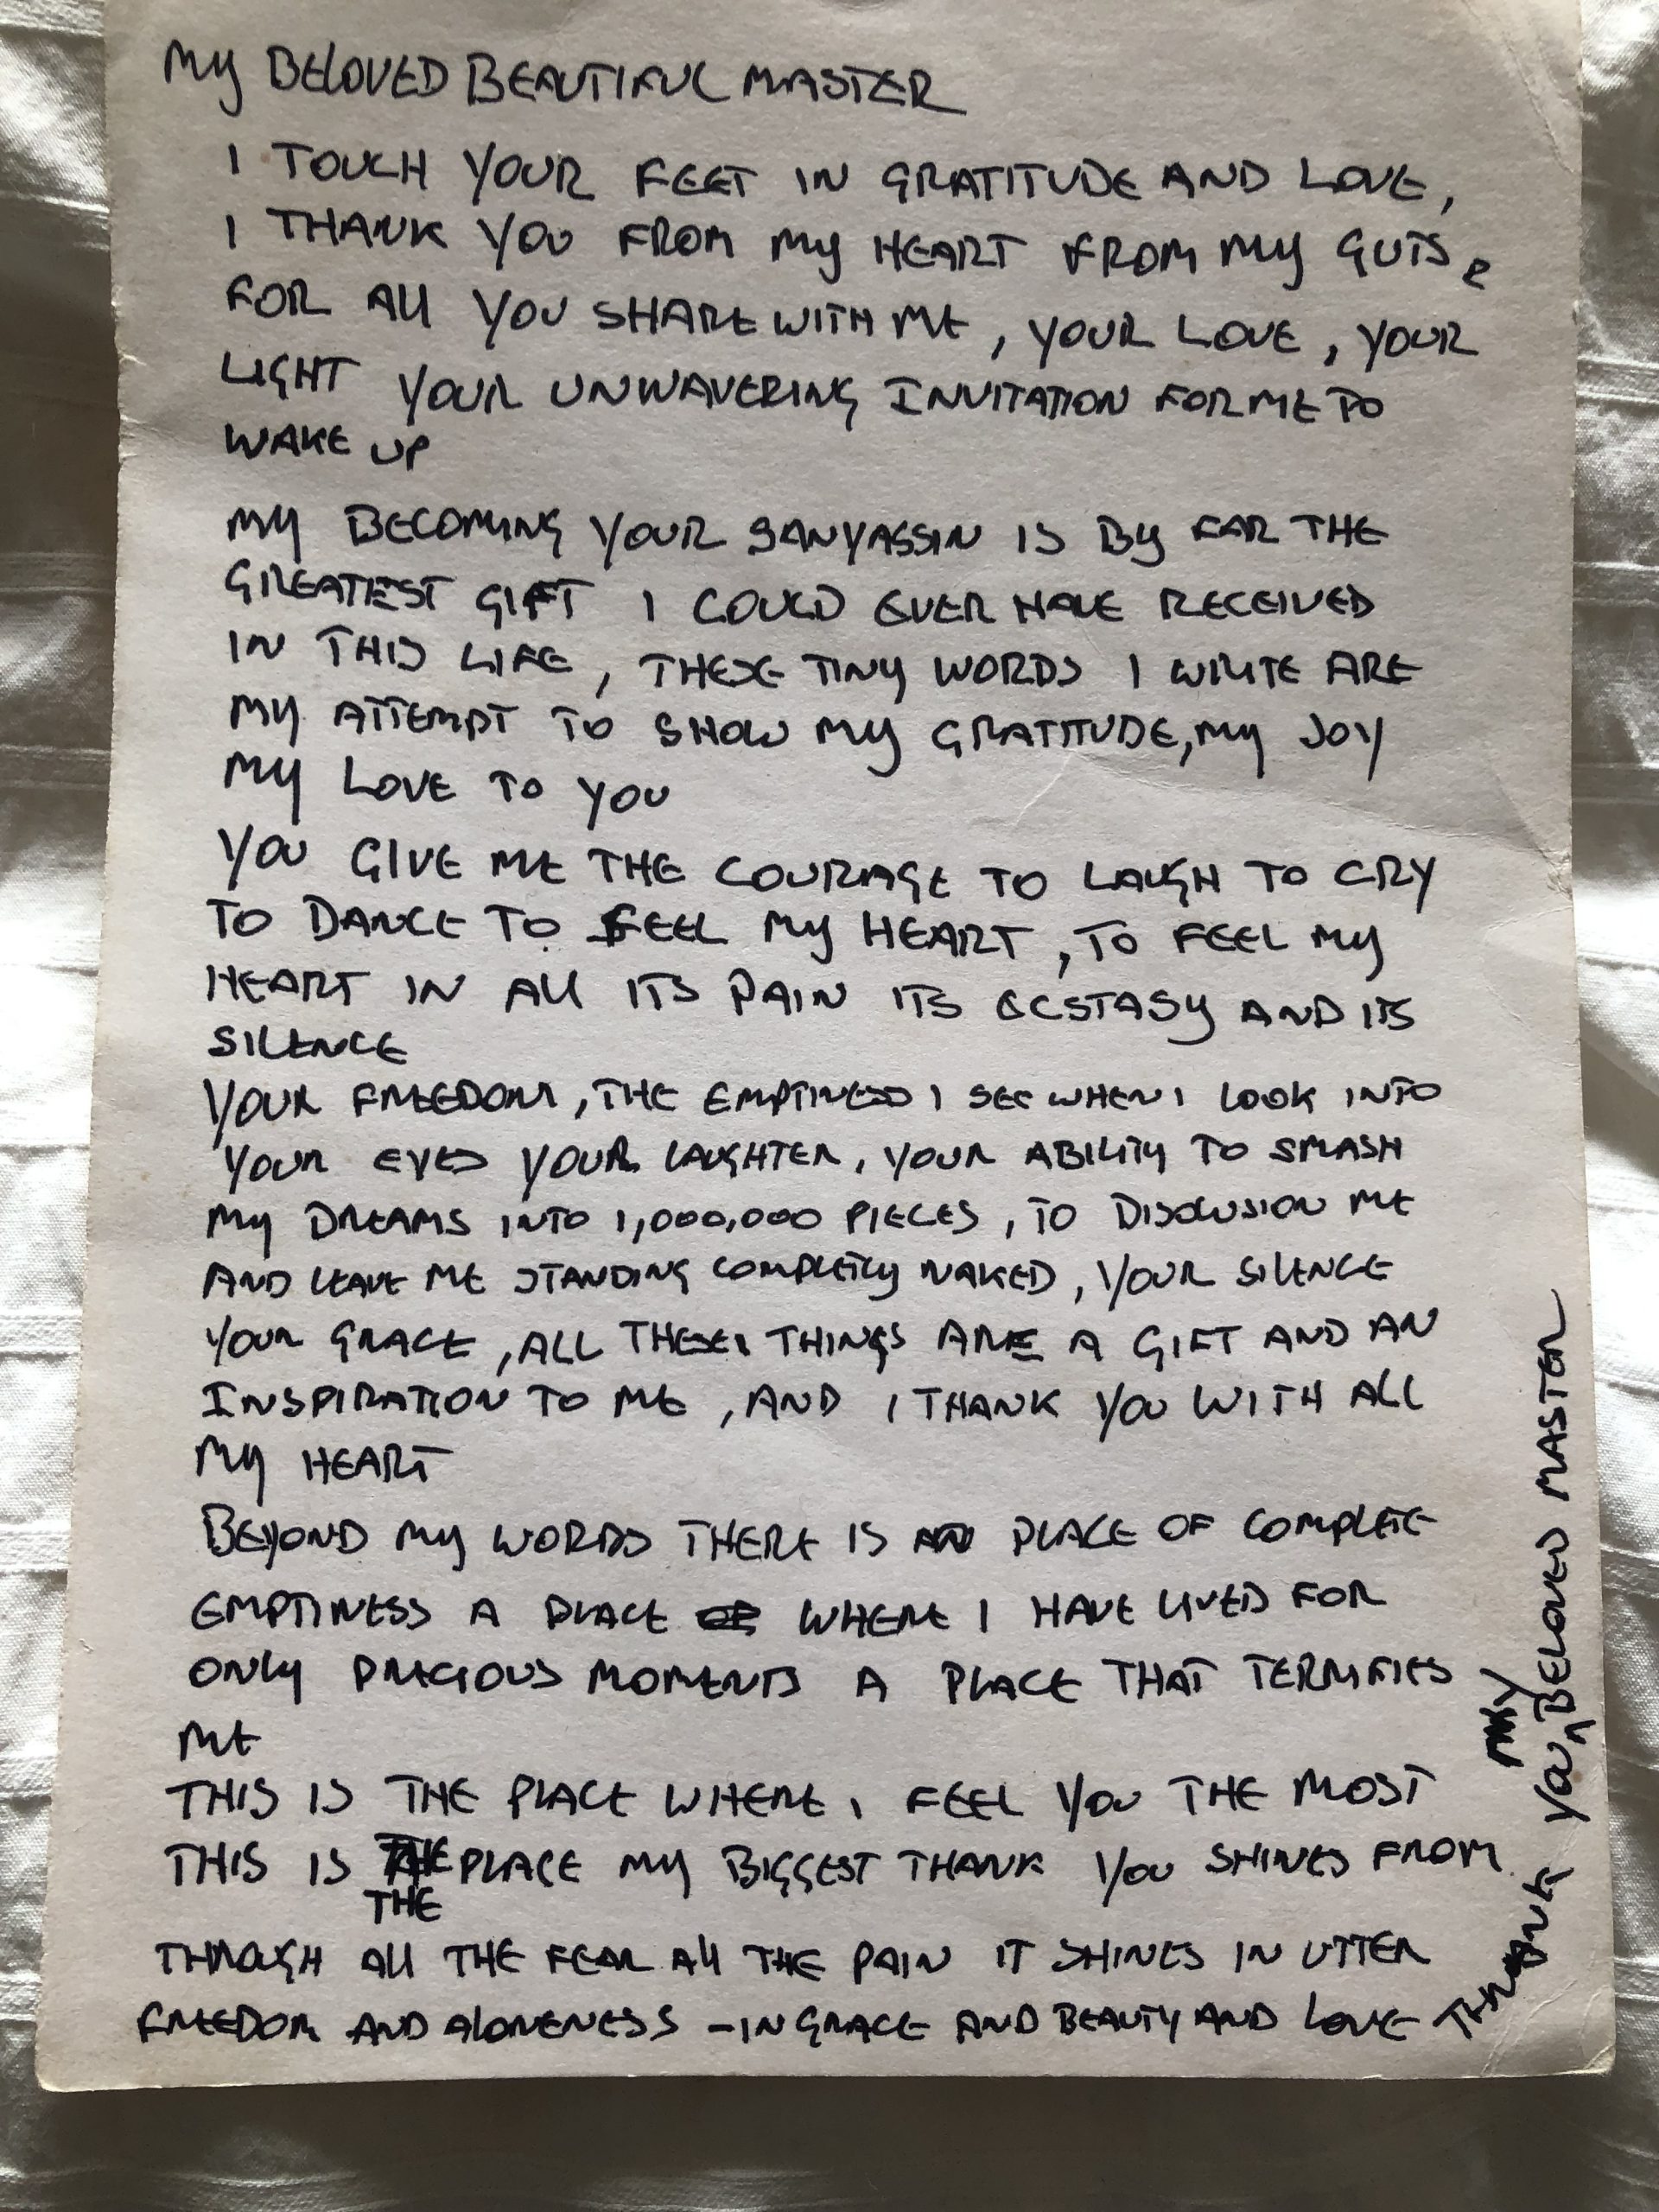 My BELOVED BEAUTIFUL MASTER
I TOUCH YOUR FEET IN GRATITUDE AND LOVE,
I THANK YOU FROM My HEART FROM My GUTS
FOR All YOU SHARE WITH ME, YOUR LOVE, YOUR
LIGHT YOUR UNWAVERING INVITATION FOR ME TO
WAKE UP
My BECOMING YOUR SANYASSIN IS By FAR THE
GREATEST GIFT I COULD EVER HAVE RECEIVED
IN THIS LIFE, THESE TINY WORDS I WRITE ARE
My ATTEMPT TO SHOW My GRATITUDE, My JOY
My LOVE TO YOU
YOU GIVE ME THE COURAGE TO LAUGH TO CRY
TO DANCE TO FEEL My HEART, TO FEEL My
HEART IN All ITS PAIN ITS ECSTASY AND ITS
SILENCE
YOUR FREEDOM, THE EMPTINESS I SEE WHEN I LOOK INTO
YOUR EYES YOUR LAUGHTER, YOUR ABILITY TO SMASH
My DREAMS INTO 1,000,000 PIECES, TO DISOLUSION ME
AND LEAVE ME STANDING COMPLETLY NAKED, YOUR SILENCE
YOUR GRACE, ALL THESE THINGS ARE A GIFT AND AN
INSPIRATION TO ME, AND I THANK YOU WITH ALL
My HEART
BEYOND My WORDS THERE IS PLACE OF COMPLETE
EMPTINESS A PLACE WHERE I HAVE LIVED FOR
ONLY PRECIOUS MOMENTS A PLACE THAT TERRIFIES
ME
THIS IS THE PLACE WHERE I FEEL YOU THE MOST
THIS IS THE PLACE My BIGGEST THANK YOU SHINES FROM
THROUGH All THE FEAR All THE PAIN IT SHINES IN UTTER
FREEDOM AND AloNENESS – IN GRACE AND BEAUTY AND LOVE
THANK YOU MY BELOVED MASTER